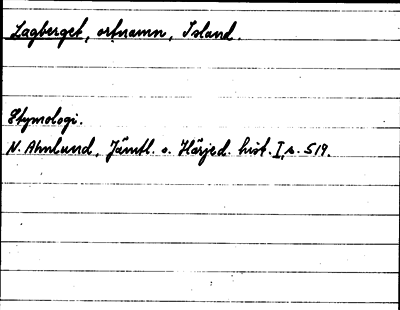 Lagberget, ortnamn, Island.
Etymologi.
N. Ahnlund, Jämtl. o. Härjed. hist. I, s. 519.